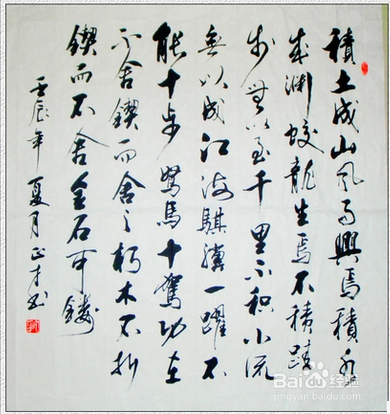 積土成山风雨興焉積水
成渊蛟龍生焉不積跬
步無以至千里不积小流
無以成江海騏驥一躍不
能十步駑馬十駕功在
不舍鍥而舍之朽木不折
鍥而不舍金石可鏤
壬辰年夏月正才书
Baidu经验
jingyan.baidu.com